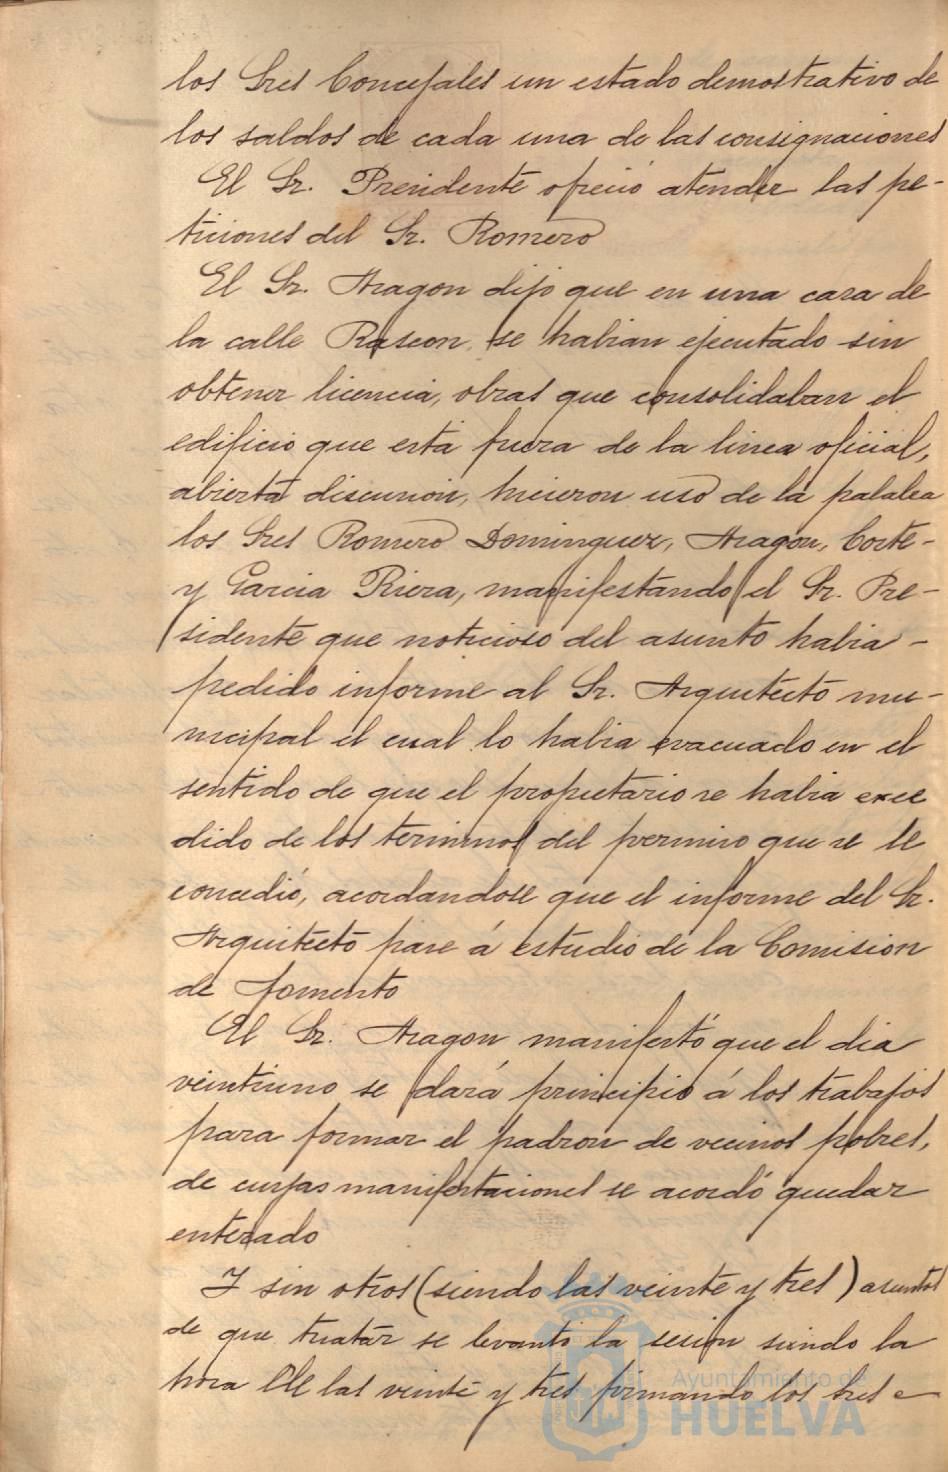 los Sres Concejales un estado demostrativo de
los saldos de cada una de las consignaciones
El Sr. Presidente ofreció atender las pe-
ticiones del Sr. Romero
El Sr. Aragon dijo que en una casa de
la calle Rascon se habian ejecutado sin
obtener licencia, obras que consolidaban el
edificio que está fuera de la linea oficial,
abierta discusion, hicieron uso de la palabra
los Sres Romero Dominguez, Aragon, Corte-
y Garcia Riera, manifestando el Sr. Pre-
sidente que noticioso del asunto habia -
pedido informe al Sr. Arquitecto mu-
nicipal el cual lo habia evacuado en el
sentido de que el propietario se habia exce
dido de los terminos del permiso que se le
concedió, acordandose que el informe del Sr.
Arquitecto pase á estudio de la Comision
de fomento
El Sr. Aragon manifestó que el dia
veintiuno se dará principio á los trabajos
para formar el padron de vecinos pobres,
de cuyas manifestaciones se acordó quedar
enterado
Y sin otros (siendo las veinte y tres) asuntos
de que tratar se levantó la sesion siendo la
hora de las veinte y tres firmando los Sres
Ayuntamiento de
HUELVA